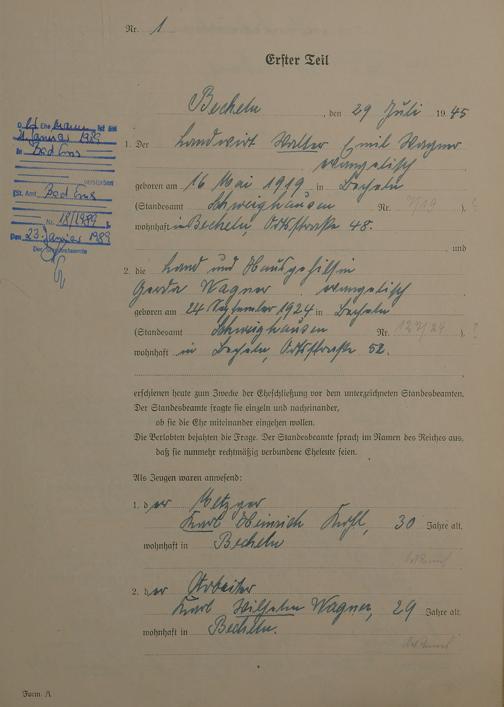 Nr. 1
Erster Teil
Becheln, den 29 Juli 1945
1. Der Landwirt Walter Emil Wagner
evangelisch
geboren am 16 Mai 1919 in Becheln
(Standesamt Schweighausen Nr. 7/19).
wohnhaft in Becheln, Ortsstraße 48.
und
2. die Land und Hausgehilfin
Gerda Wagner evangelisch
geboren am 24 September 1924 in Becheln
(Standesamt Schweighausen Nr. ).
wohnhaft in Becheln, Ortsstraße 52.
erschienen heute zum Zwecke der Eheschließung vor dem unterzeichneten Standesbeamten.
Der Standesbeamte fragte sie einzeln und nacheinander,
ob sie die Ehe miteinander eingehen wollen.
Die Verlobten bejahten die Frage. Der Standesbeamte sprach im Namen des Reiches aus,
daß sie nunmehr rechtmäßig verbundene Eheleute seien.
Als Zeugen waren anwesend:
1. der Metzger
Karl Heinrich 30 Jahre alt,
wohnhaft in Becheln
2. der Arbeiter
Karl Wilhelm Wagner, 29 Jahre alt,
wohnhaft in Becheln.
Form. A
Ehemann ist am
Januar 1989
in Bad Ems
verstorben
(St. Amt Bad Ems
Nr. 18/1989
Den 23. Januar 1989
Der Standesbeamte